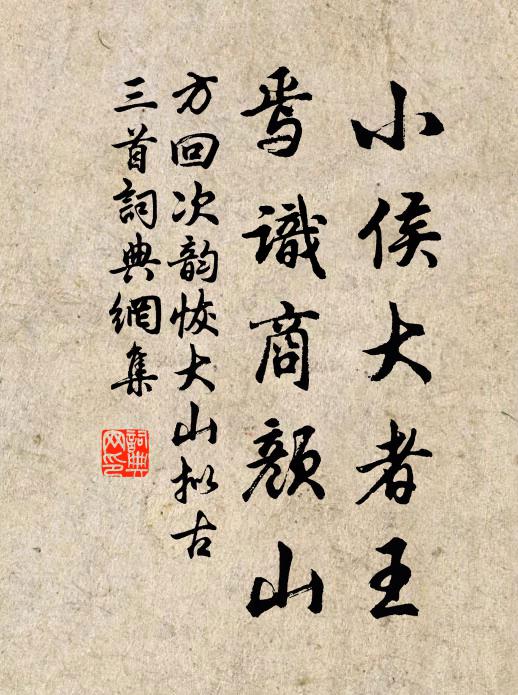 小侯大者王
焉識商顏山
方回次韵恢大山拟古
三首詞典網集
詞典網印